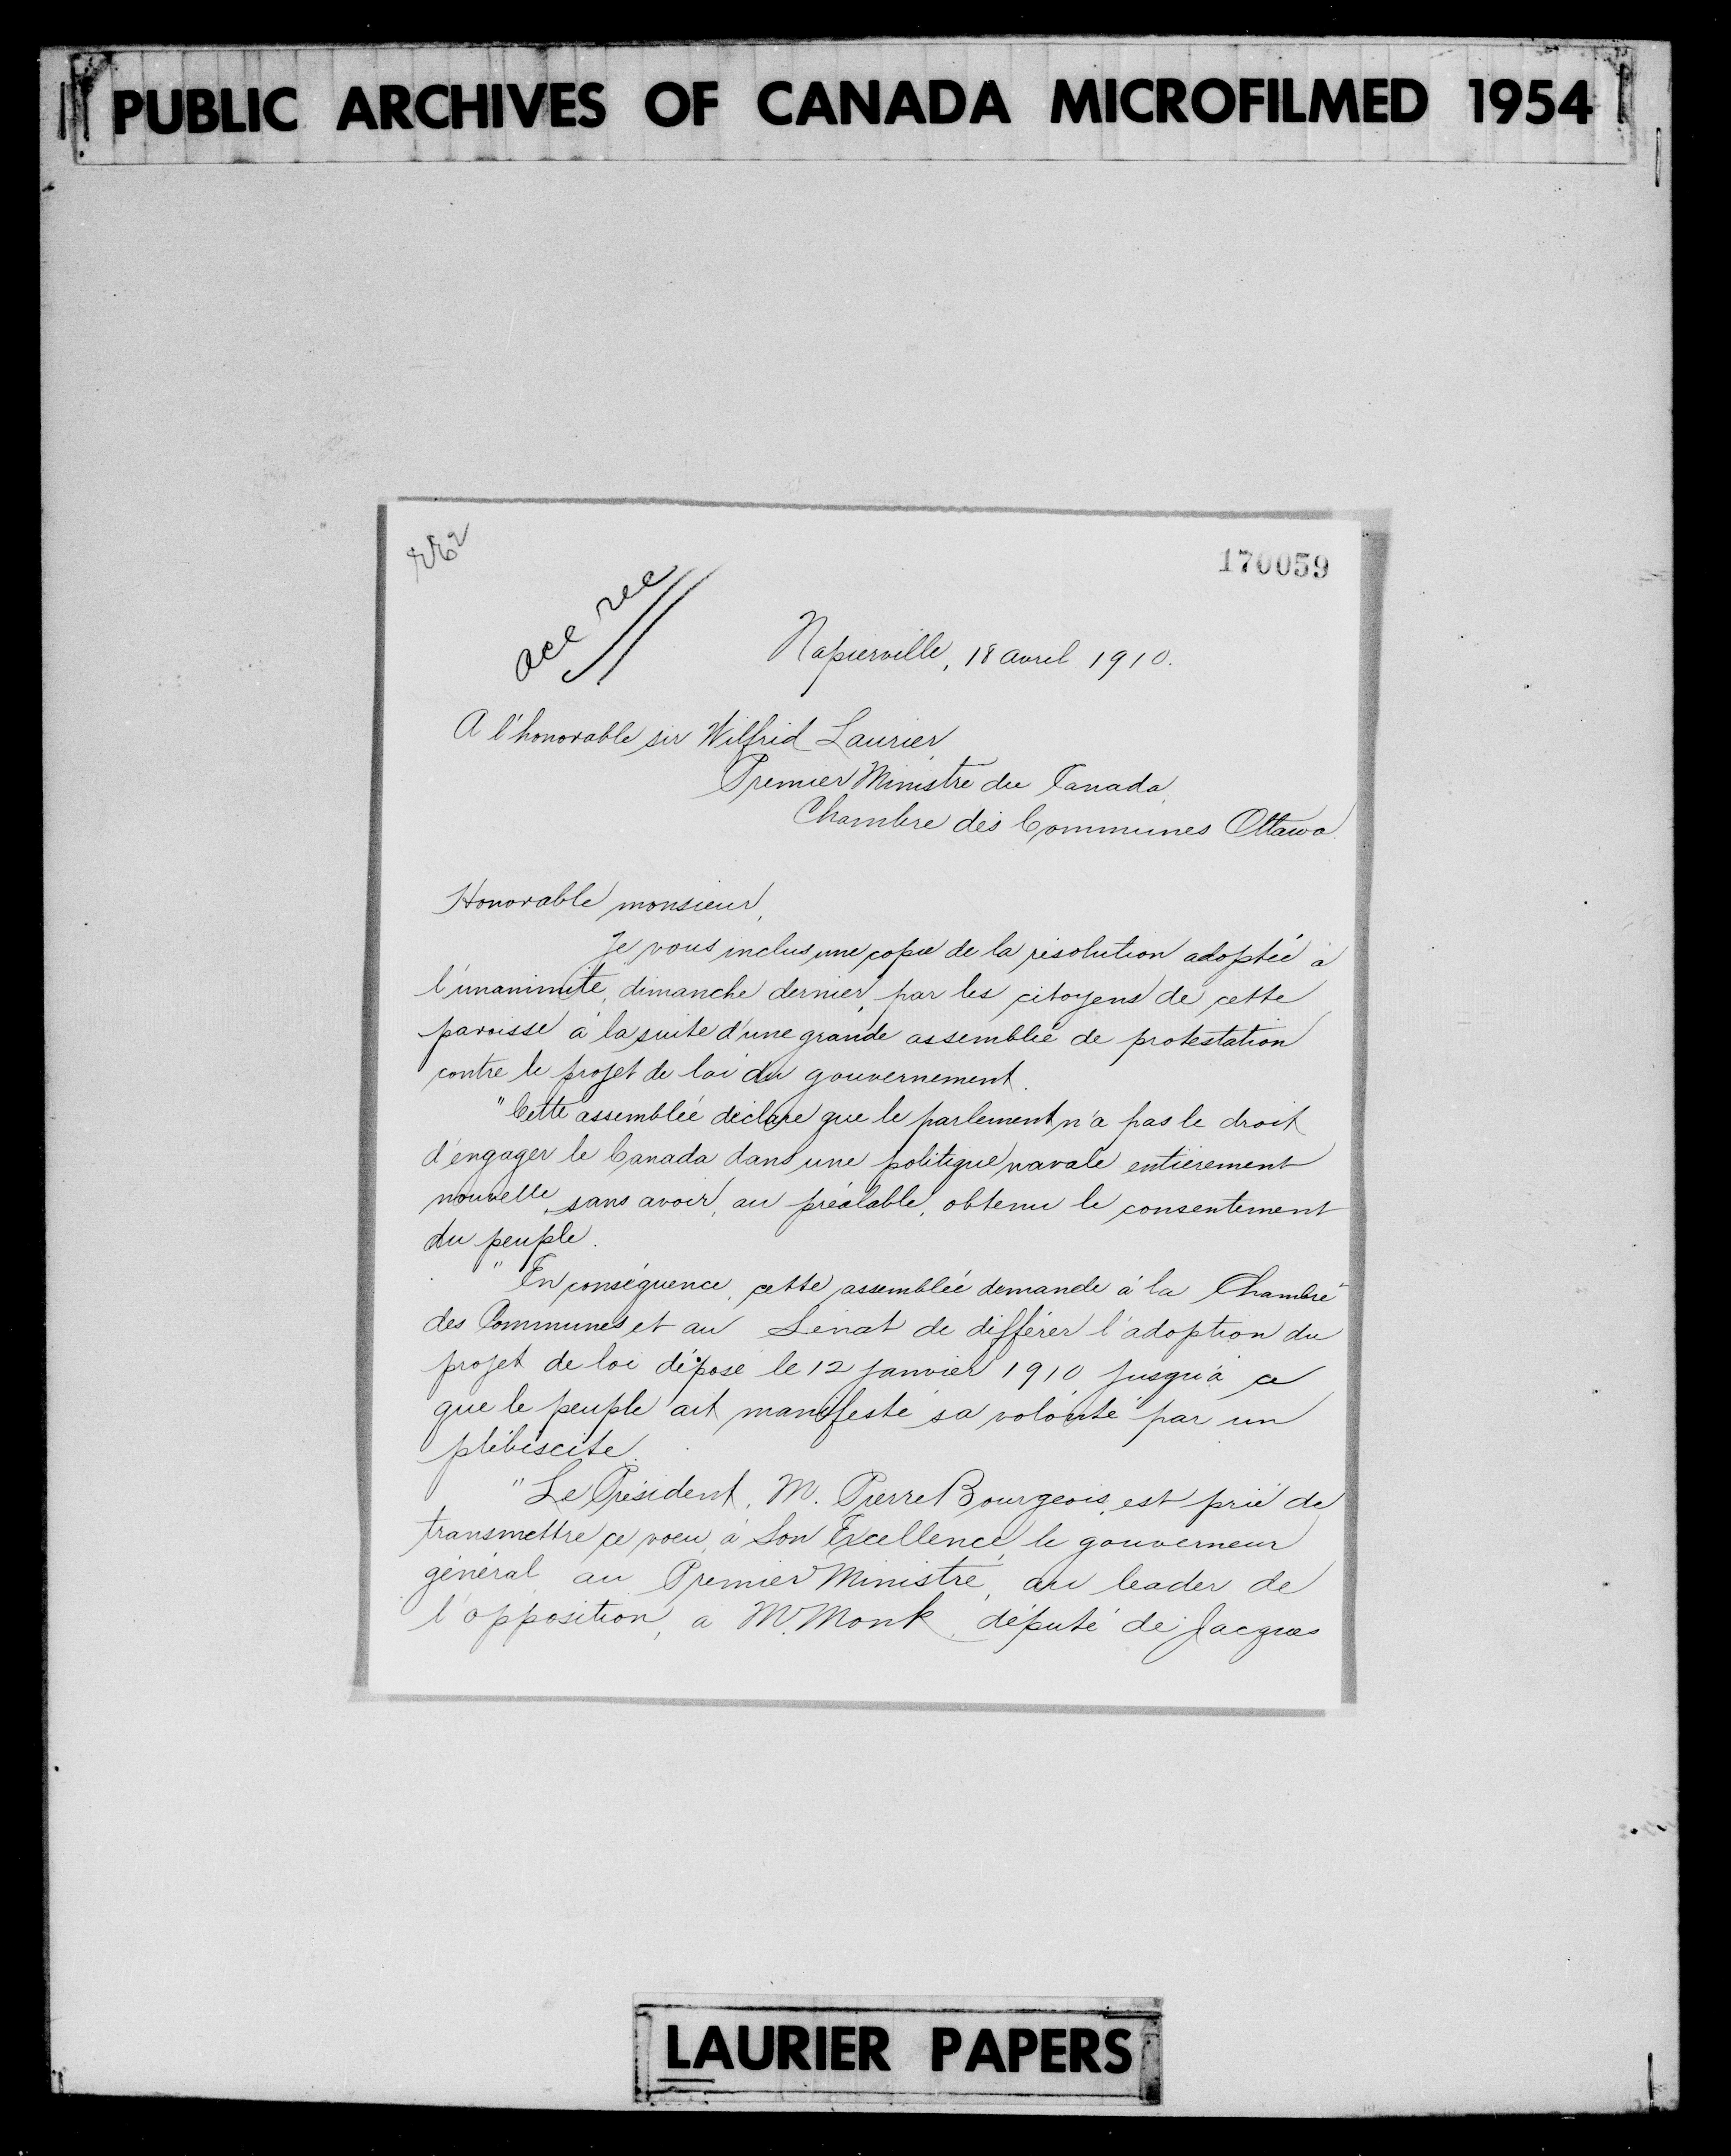 PUBLIC ARCHIVES OF CANADA MICROFILMED 1954
170059
acc rec
Napierville, 18 avril 1910.
A l'honorable sir Wilfrid Laurier
Premier Ministre du Canada,
Chambre des Communes Ottawa.
Honorable monsieur,
Je vous inclus une copie de la résolution adoptée à
l'unanimité, dimanche dernier, par les citoyens de cette
paroisse à la suite d'une grande assemblée de protestation
contre le projet de loi du gouvernement.
"Cette assemblée déclare que le parlement n'a pas le droit
d'engager le Canada dans une politique navale entièrement
nouvelle, sans avoir, au préalable, obtenu le consentement
du peuple.
"En conséquence, cette assemblée demande à la Chambre
des Communes et au Sénat de différer l'adoption du
projet de loi déposé le 12 janvier 1910 jusqu'à ce
que le peuple ait manifesté sa volonté par un
plébiscite.
"Le Président, M. Pierre Bourgeois, est prié de
transmettre ce voeu, à Son Excellence, le gouverneur
général, au Premier Ministre, au leader de
l'opposition, à M. Monk, député de Jacques
LAURIER PAPERS